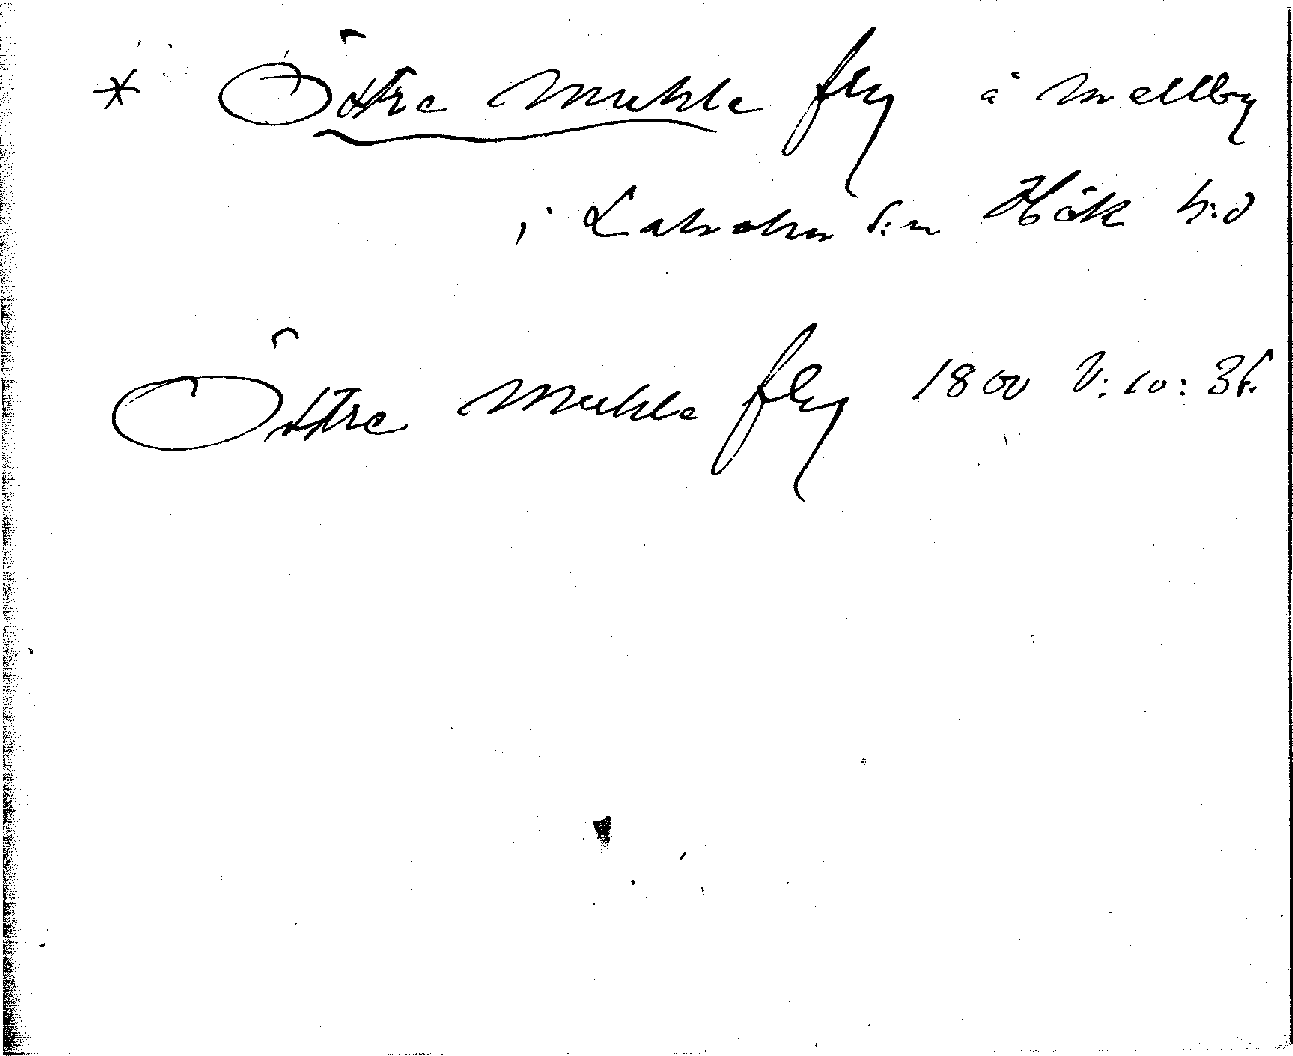 * Östre Muhle fly å Mellby
i Laholm s:n Höks h:d
Östre Muhle fly 1800 V: 10: 36.